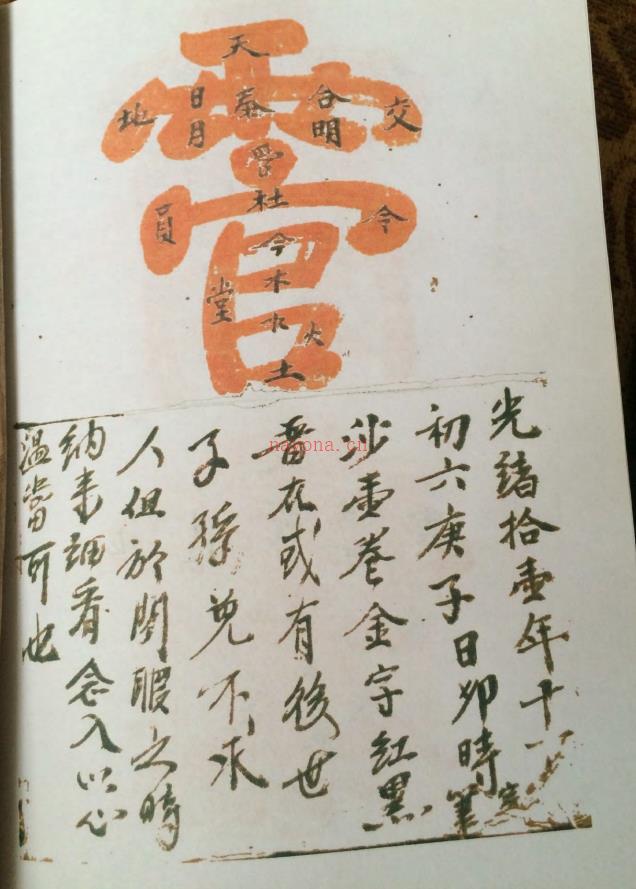 天
交
合明
泰
日月
地
杜
令
員
今
木
水
火
土
堂
光緒拾壹年十一
初六庚子日卯時筆完
抄壹卷金字紅黑
番在或有後世
子孫免不求
人但於閑暇之時
納来細看念入以心
温當可也
nayona.cn